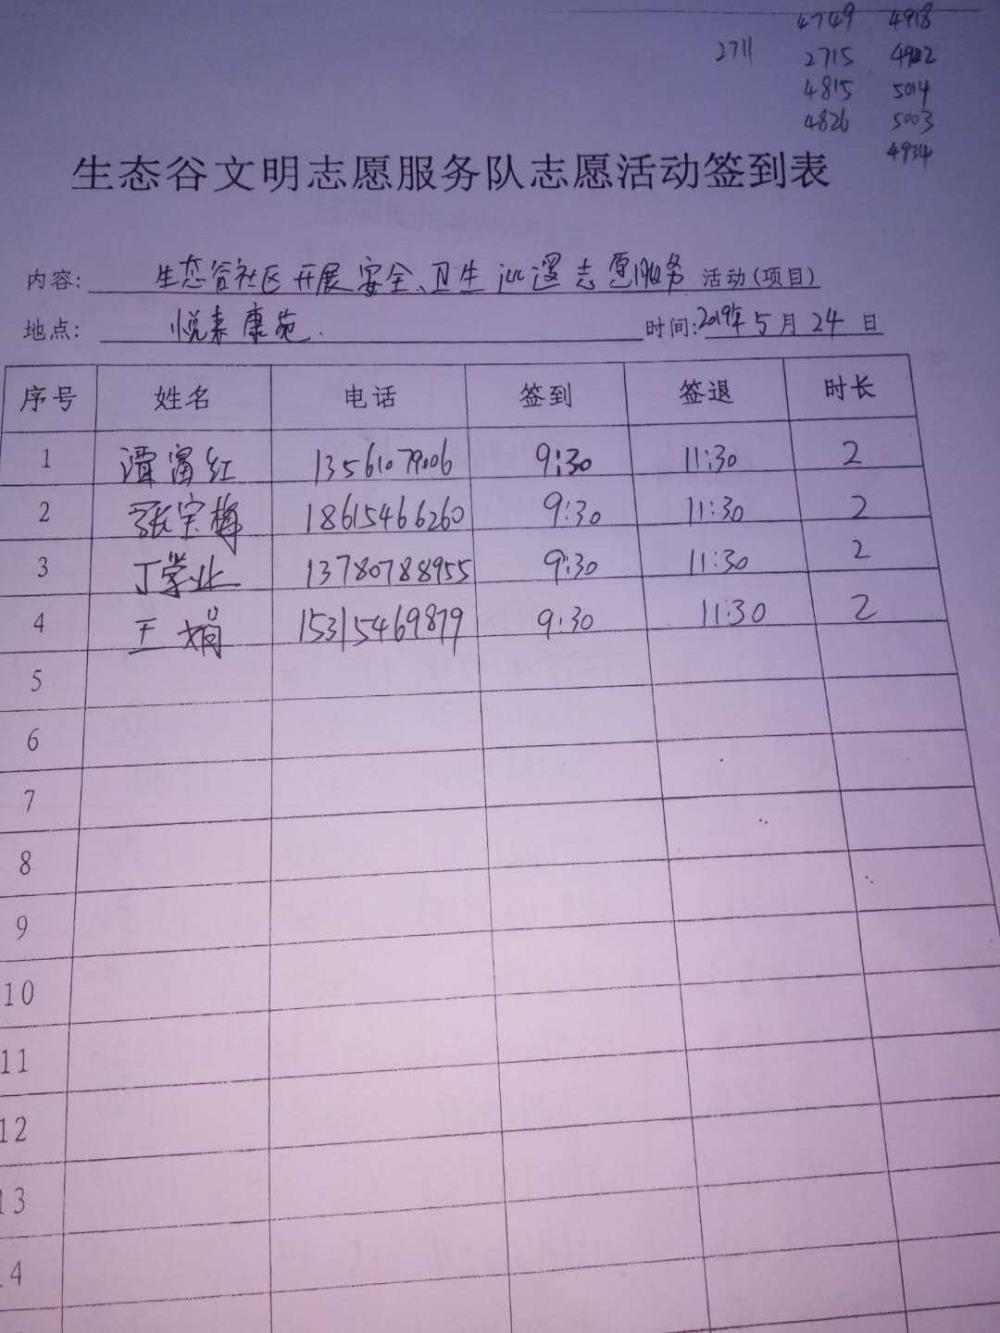 4749 4918
2711 2715 4902
4815 5014
4826 5003
4934
生态谷文明志愿服务队志愿活动签到表
内容: 生态谷社区开展安全、卫生巡逻志愿服务 活动(项目)
地点: 悦来康苑. 时间:2019年5月24日
序号 姓名 电话 签到 签退 时长
1 谭富红 13561079006 9:30 11:30 2
2 张宝梅 18615466260 9:30 11:30 2
3 丁学业 13780788955 9:30 11:30 2
4 王娟 15315469879 9:30 11:30 2
5
6
7
8
9
10
11
12
13
14